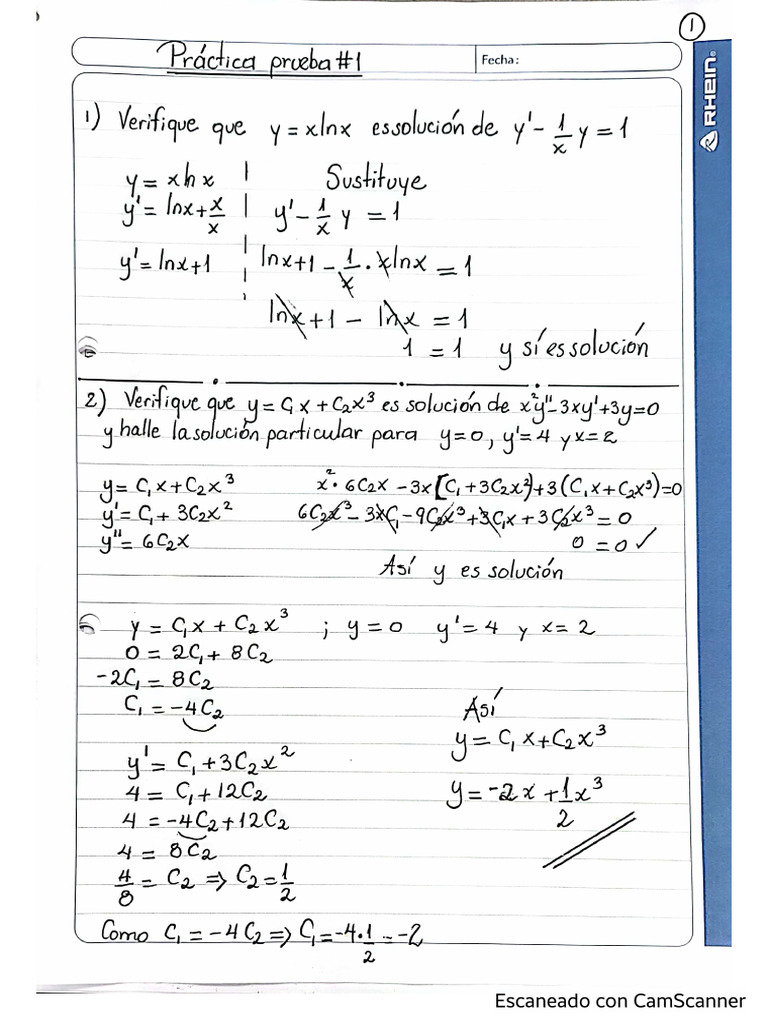 1
Práctica prueba #1
Fecha:
RHEIN®
1) Verifique que y = xlnx es solución de y' - 1/x y = 1
y = xlnx | Sustituye
y' = lnx + x/x | y' - 1/x y = 1
y' = lnx + 1 | lnx + 1 - 1/x · xlnx = 1
lnx + 1 - lnx = 1
1 = 1 y sí es solución
2) Verifique que y = C₁x + C₂x³ es solución de x²y'' - 3xy' + 3y = 0
y halle la solución particular para y = 0, y' = 4 y x = 2
y = C₁x + C₂x³ x² · 6C₂x - 3x[C₁ + 3C₂x²] + 3(C₁x + C₂x³) = 0
y' = C₁ + 3C₂x² 6C₂x³ - 3xC₁ - 9C₂x³ + 3C₁x + 3C₂x³ = 0
y'' = 6C₂x 0 = 0 ✓
Así y es solución
y = C₁x + C₂x³ ; y = 0 y' = 4 y x = 2
0 = 2C₁ + 8C₂
-2C₁ = 8C₂
C₁ = -4C₂ Así
y = C₁x + C₂x³
y' = C₁ + 3C₂x²
4 = C₁ + 12C₂ y = -2x + 1/2 x³
4 = -4C₂ + 12C₂
4 = 8C₂
4/8 = C₂ ⇒ C₂ = 1/2
Como C₁ = -4C₂ ⇒ C₁ = -4 · 1/2 = -2
Escaneado con CamScanner